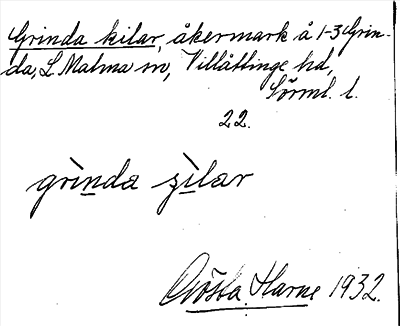 Grinda kilar, åkermark å 1-3 Grin-
da, L Malma sn, Villåttinge hd,
Sörml. l.
22.
grìnda ʒìlar
Gösta Harne 1932.